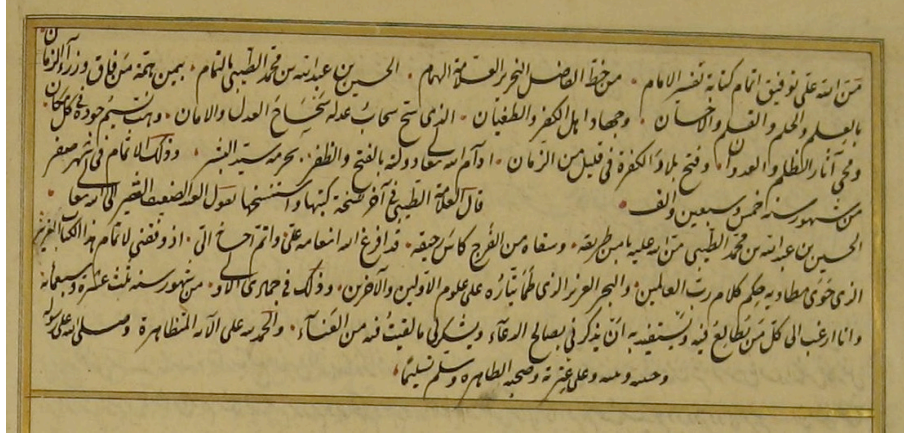 منّ الله على توفيق اتمام كتابة تفسير الامام من خط الفاضل النحرير العلامة الهمام الحسين بن عبد الله بن محمد الطيبي بالتمام بيمن همة من فاق وزرآء الزمان
بالعلم والحلم والقلم والاحسان وجهاد اهل الكفر والطغيان الذى سح سحاب عدله العدل والامان وهبت نسيم جوده فى كل مكان
ومحى آثار الظلم والعدوان وفتح بلاد الكفرة فى قليل من الزمان ادام الله سعادة دولته بالفتح والظفر بحرمة سيد البشر وذلك الاتمام فى اشهر صفر
من شهور سنه خمس وسبعين والف قال العلامة الطيبي فى آخر نسخة كتبها واستنسخها يقول العبد الضعيف الفقير الى الله تعالى
الحسين بن عبد الله بن محمد الطيبي منّ الله عليه بامن طريقه وسقاه من الفرج كاس رحيقه قد افرغ الله انعامه علىّ واتم احسانه الىّ اذ وفقنى لاتمام هذا الكتاب العزيز
الذى حوى مطاويه حكم كلام رب العالمين والبحر الغزير الذى طمّا تيّاره على علوم الاوّلين والآخرين وذلك فى جمادى الاولى من شهور سنه ثلث عشرة وسبعمائة
وانا ارغب الى كل من يطالع فيه ويستفيد به ان يذكرنى بصالح الدعآء ويشكرلى ما لقيت فيه من العنآء والحمد لله على آلائه المتظاهرة وصلى الله على رسوله
وعلى عترته وصحبه الطاهرة وسلم تسليمًا